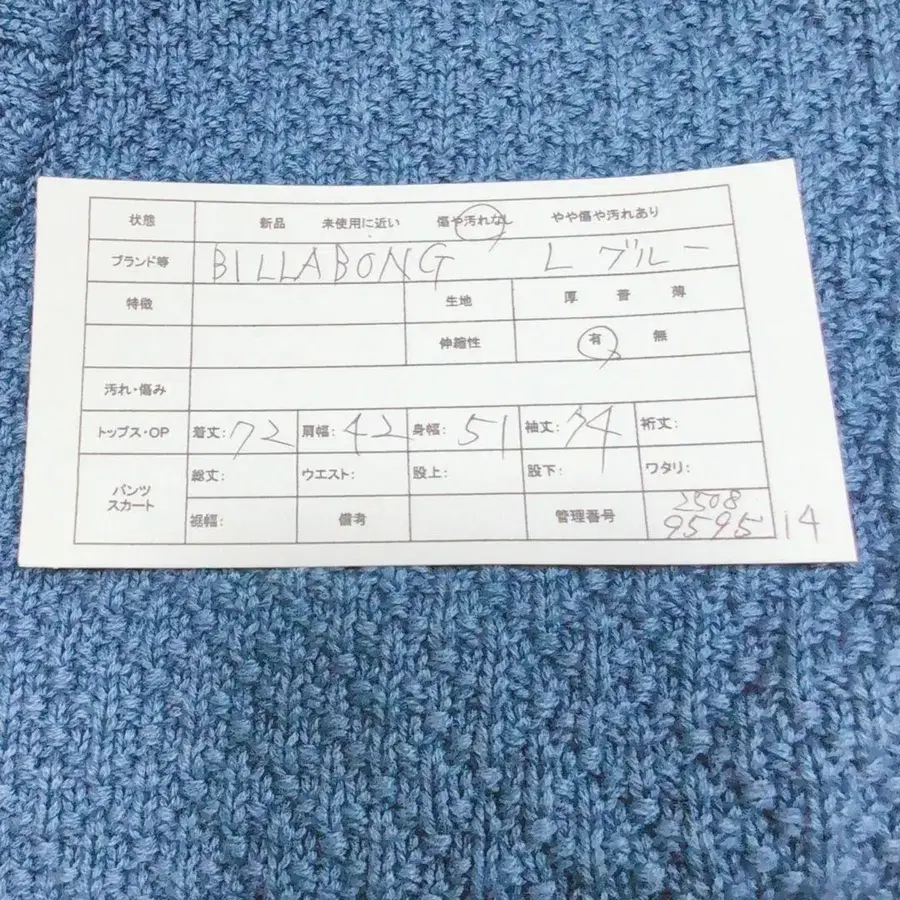 状態 新品 未使用に近い 傷や汚れなし やや傷や汚れあり
ブランド等 BILLABONG L ブルー
特徴 生地 厚 普 薄
伸縮性 有 無
汚れ・傷み
トップス・OP 着丈: 72 肩幅: 42 身幅: 51 袖丈: 74 裄丈:
パンツ スカート 総丈: ウエスト: 股上: 股下: ワタリ:
裾幅: 備考 管理番号 2508
9595 i4